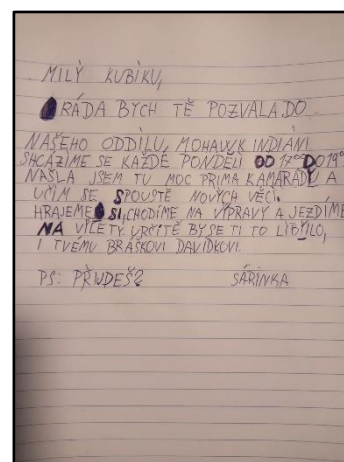 MILÝ KUBÍKU,
RÁDA BYCH TĚ POZVALA DO
NAŠEHO ODDÍLU, MOHAWK INDIÁNI.
SHCÁZÍME SE KAŽDÉ PONDĚLÍ OD 17⁰⁰ DO 19⁰⁰
NAŠLA JSEM TU MOC PRIMA KAMARÁDY A
UČÍM SE SPOUSTĚ NOVÝCH VĚCÍ.
HRAJEME SI, CHODÍME NA VÝPRAVY A JEZDÍME
NA VÝLETY. URČITĚ BY SE TI TO LÍBYLO,
I TVÉMU BRÁŠKOVI DAVÍDKOVI.
PS: PŘIJDEŠ? SÁRINKA